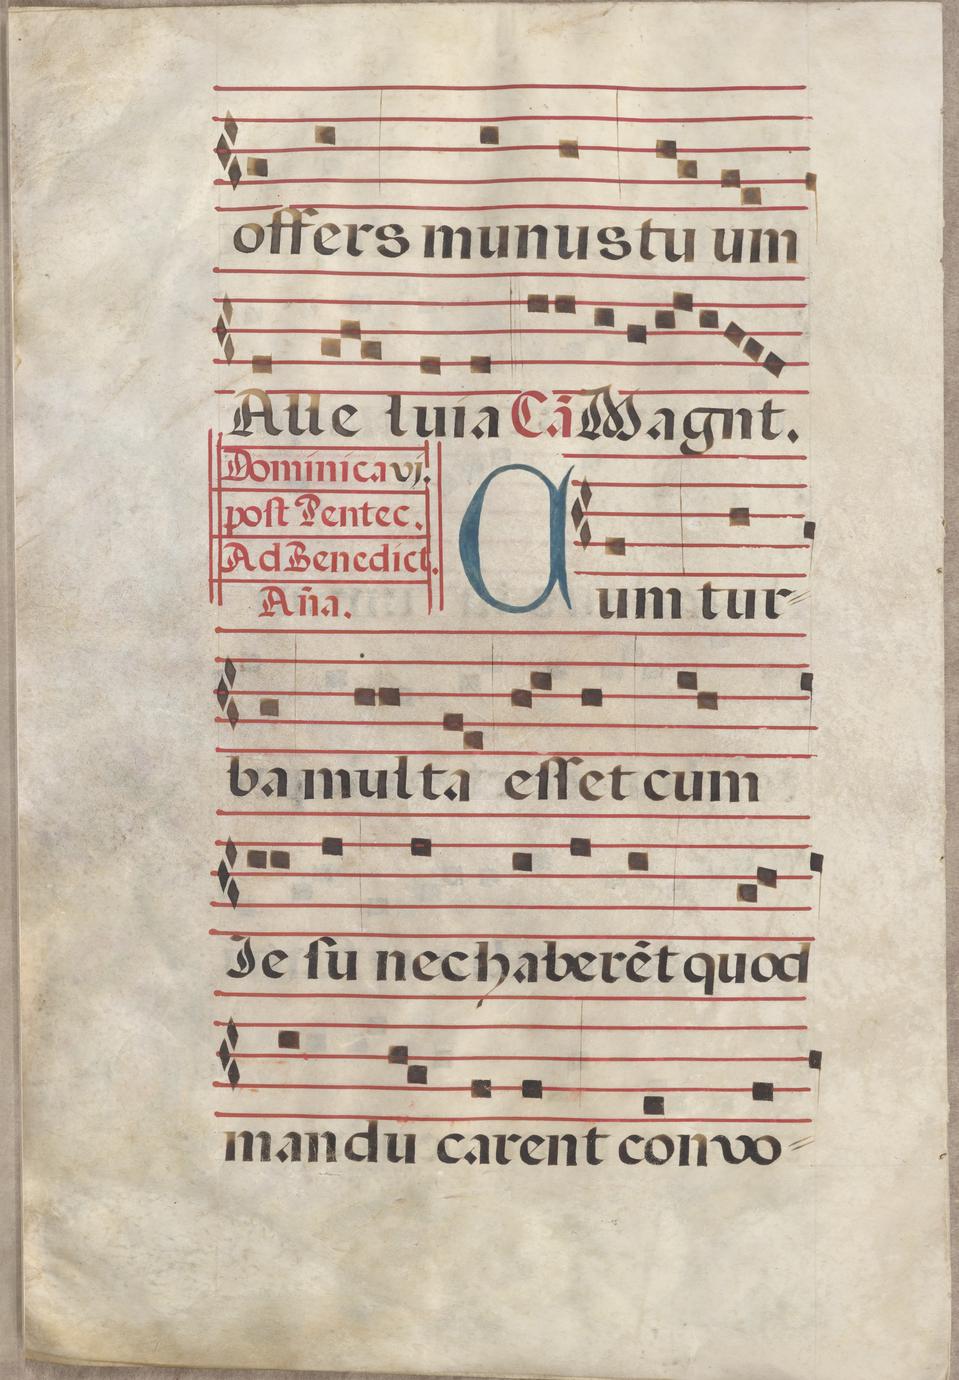 offers munus tuum
Alleluia Cā Magnt.
Dominica vj.
post Pentec.
Ad Benedict.
Aña.
Cum tur=
ba multa esset cum
Jesu nec haberēt quod
manducarent convo=